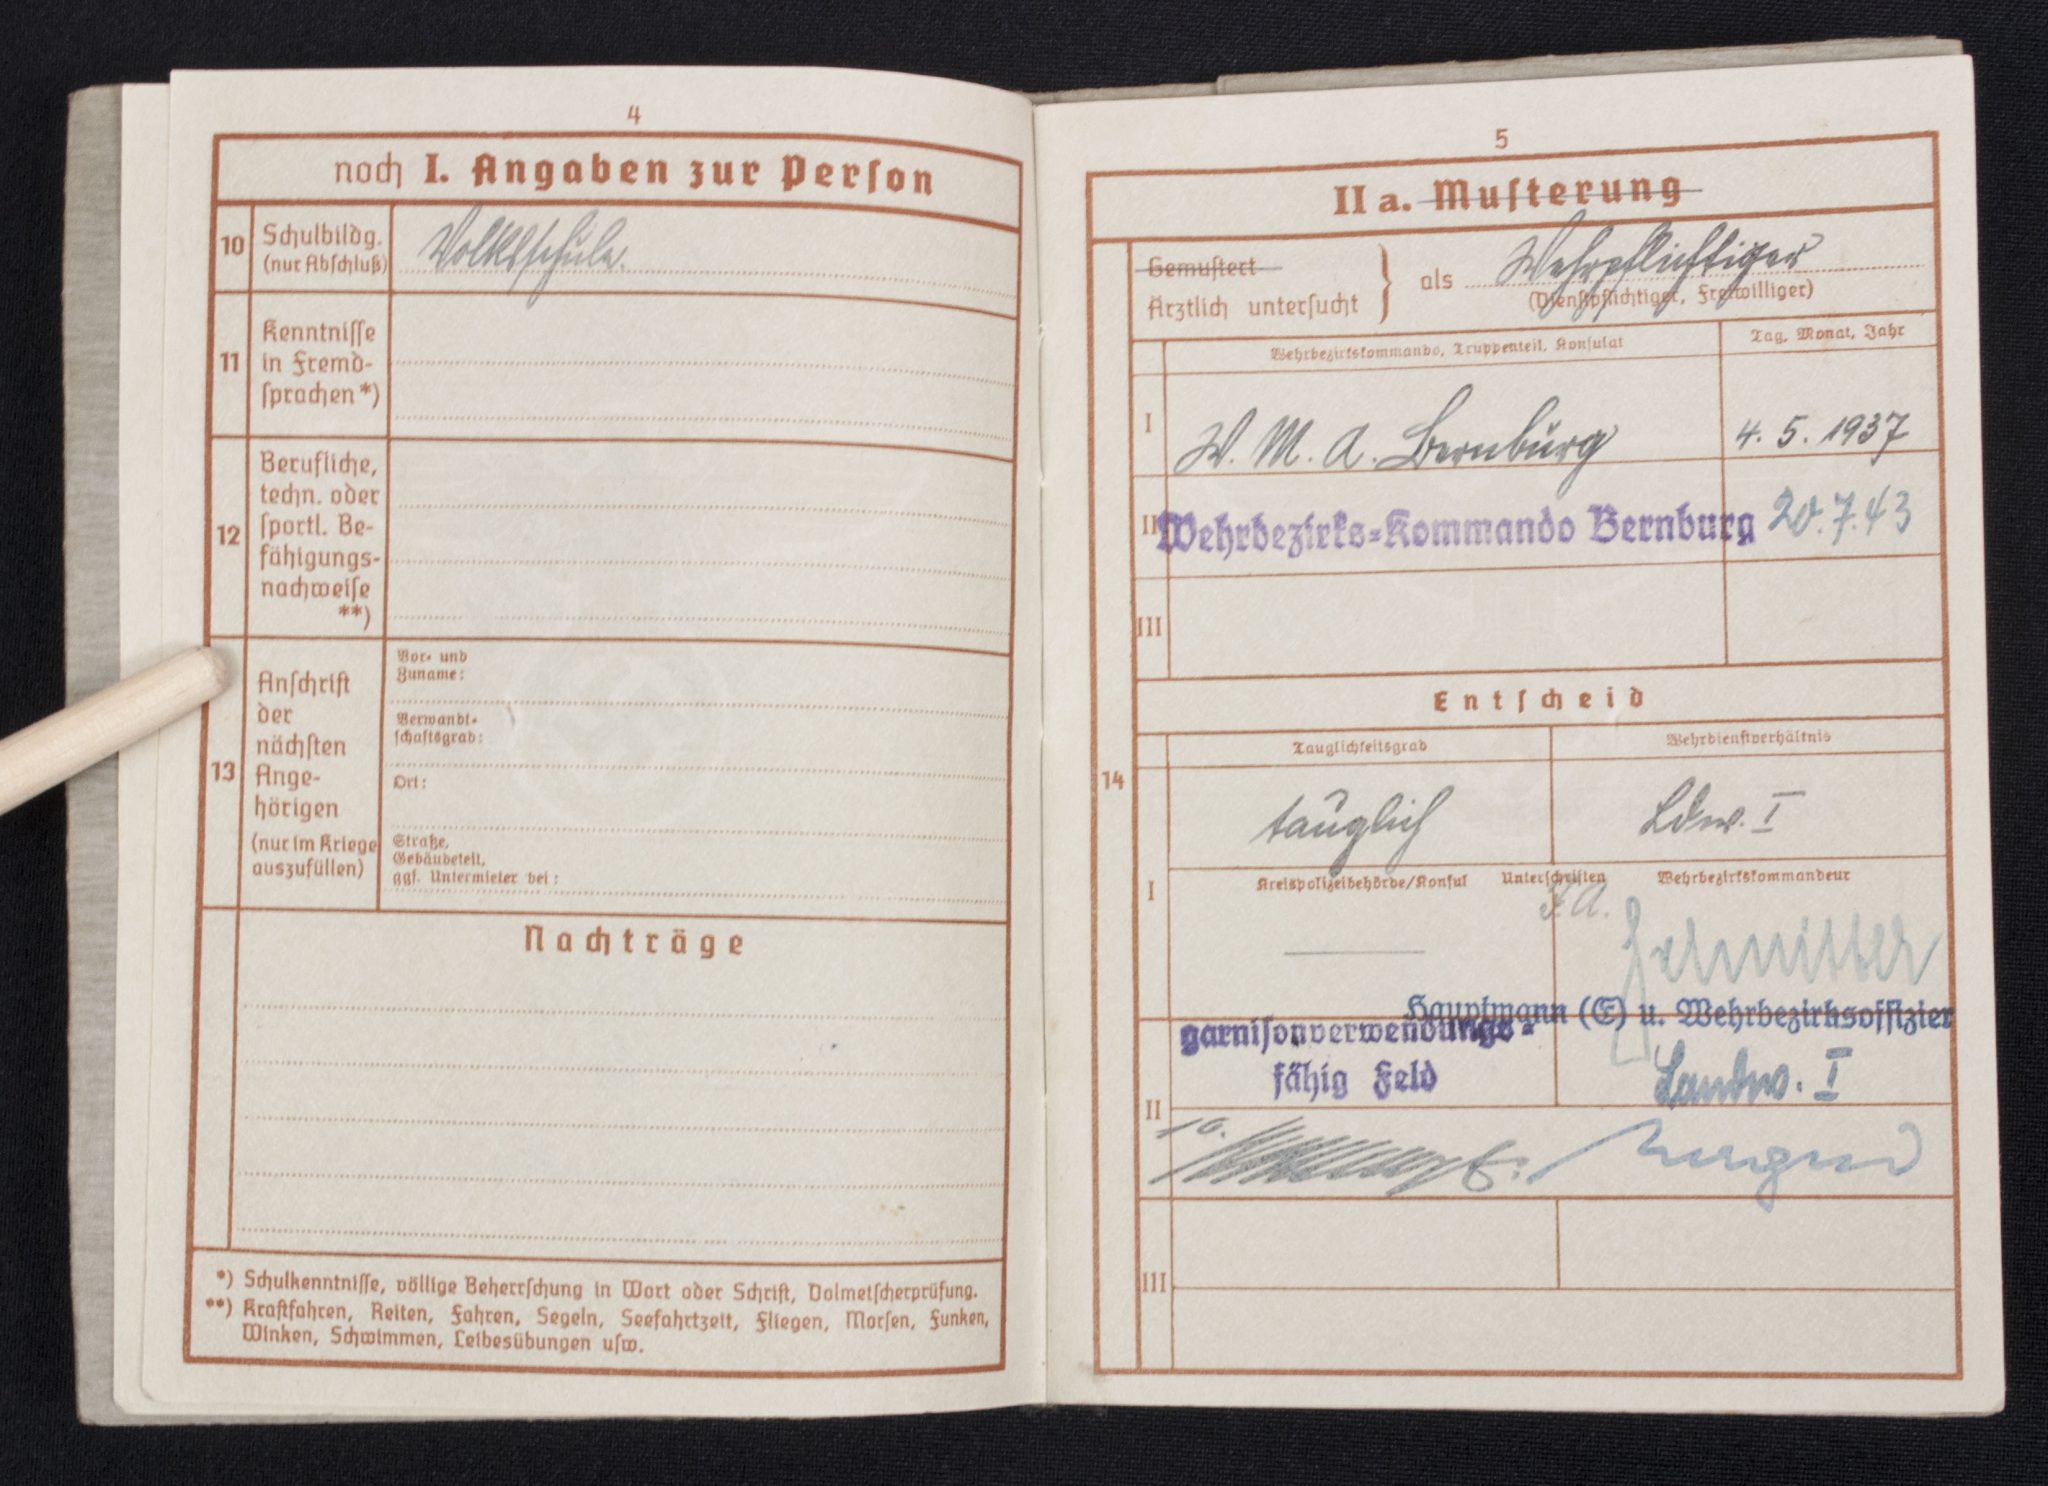 4
noch I. Angaben zur Person
10
Schulbildg.
(nur Abschluß)
Volksschule.
11
Kenntnisse
in Fremd-
sprachen *)
12
Berufliche,
techn. oder
sportl. Be-
fähigungs-
nachweise
**)
13
Anschrift
der
nächsten
Ange-
hörigen
(nur im Kriege
auszufüllen)
Vor- und
Zuname:
Verwandt-
schaftsgrad:
Ort:
Straße,
Gebäudeteil,
ggf. Untermieter bei:
Nachträge
*) Schulkenntnisse, völlige Beherrschung in Wort oder Schrift, Dolmetscherprüfung.
**) Kraftfahren, Reiten, Fahren, Segeln, Seefahrtzeit, Fliegen, Morsen, Funken,
Winken, Schwimmen, Leibesübungen usw.
5
II a. Musterung
Gemustert
Ärztlich untersucht
als
Wehrpflichtiger
(Dienstpflichtiger, Freiwilliger)
Wehrbezirkskommando, Truppenteil, Konsulat
Tag, Monat, Jahr
I
W. M. A. Bernburg
4. 5. 1937
II
Wehrbezirks-Kommando Bernburg
20.7.43
III
Entscheid
Tauglichkeitsgrad
Wehrdienstverhältnis
14
tauglich
Ldw. I
I
Kreispolizeibehörde/Konsul
Unterschriften
Wehrbezirkskommandeur
J. A.
Hauptmann (E) u. Wehrbezirksoffizier
garnisonverwendungs-
fähig Feld
Landw. I
II
III